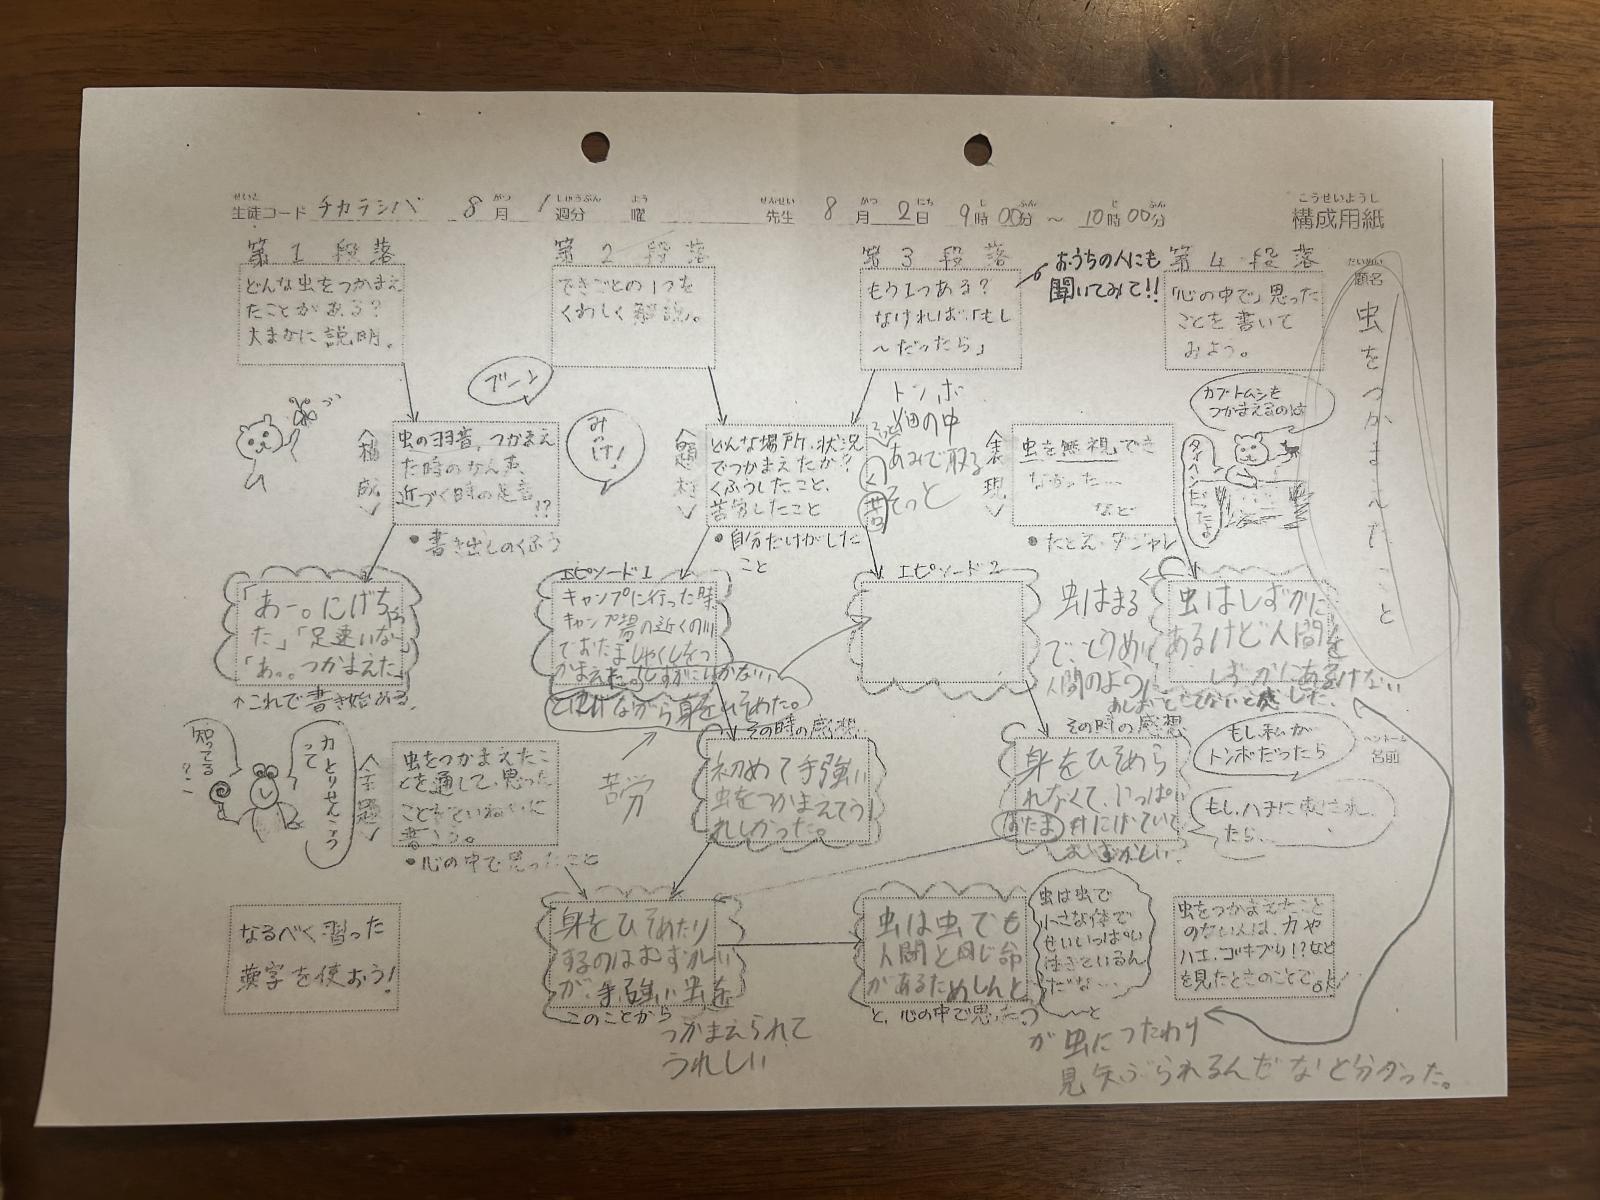 生徒コード チカラシバ 8月 1週分 曜 先生 8月2日 9時00分 ～ 10時00分 構成用紙
せいと がつ しゅうぶん よう せんせい がつ にち じ ふん じ ふん こうせいようし
第1段落
どんな虫をつかまえ
たことがある？
大まかに説明。
第2段落
できごとの1つを
くわしく解説。
第3段落
もう1つある？
なければ、「もし
～だったら」
おうちの人にも
聞いてみて!!
第4段落
「心の中で」思った
ことを書いて
みよう。
だいめい
題名
虫をつかまえたこと
ブーン
〈構成〉
虫の羽音、つかまえ
た時のなん声、
近づく時の足音
!?
・書き出しのくふう
みっけ！
〈題材〉
どんな場所、状況
でつかまえたか？
くふうしたこと、
苦労したこと
・自分だけがした
こと
トンボ
畑の中
あみで取る
そっと
く
苦
〈表現〉
虫を無視でき
なかった…
など
・たとえ・ダジャレ
カブトムシを
つかまえるのは
タイヘンだったよ
「あー。にげちゃっ
た」「足速いな」
「あ。。つかまえた」
↑これで書き始める。
エピソード1
キャンプに行った時
キャンプ場の近くの川
でおたまじゃくしを
つかまえた。
身をひそめた。
苦労
エピソード2
虫はまる
で、
人間のよう
虫はしずかに
あるけど人間を
しずかにあるけない
と感じた。
知ってる
？
カとりせんこう
って
〈主題〉
虫をつかまえたこ
とを通して、思った
ことをていねいに
書こう。
・心の中で思ったこと
その時の感想
初めて手強い
虫をつかまえてう
れしかった。
その時の感想
身をひそめら
れなくて、いっぱい
おたま
むずかしい。
もし、私が
トンボだったら
ペンネーム
名前
もし、ハチに
たら…
なるべく習った
漢字を使おう！
身をひそめたり
するのはむずかしい
が、手強い虫を
このことから
つかまえられて
うれしい
虫は虫でも
人間と同じ命
があるため
と、心の中で思った。
虫は虫で
小さな体で
せいいっぱい
生きているん
だな…
～と
虫をつかまえたこと
のない人は、カや
ハエ、ゴキブリ!?など
を見たときのことでOK！
が虫につたわり
見 られるんだなと分かった。